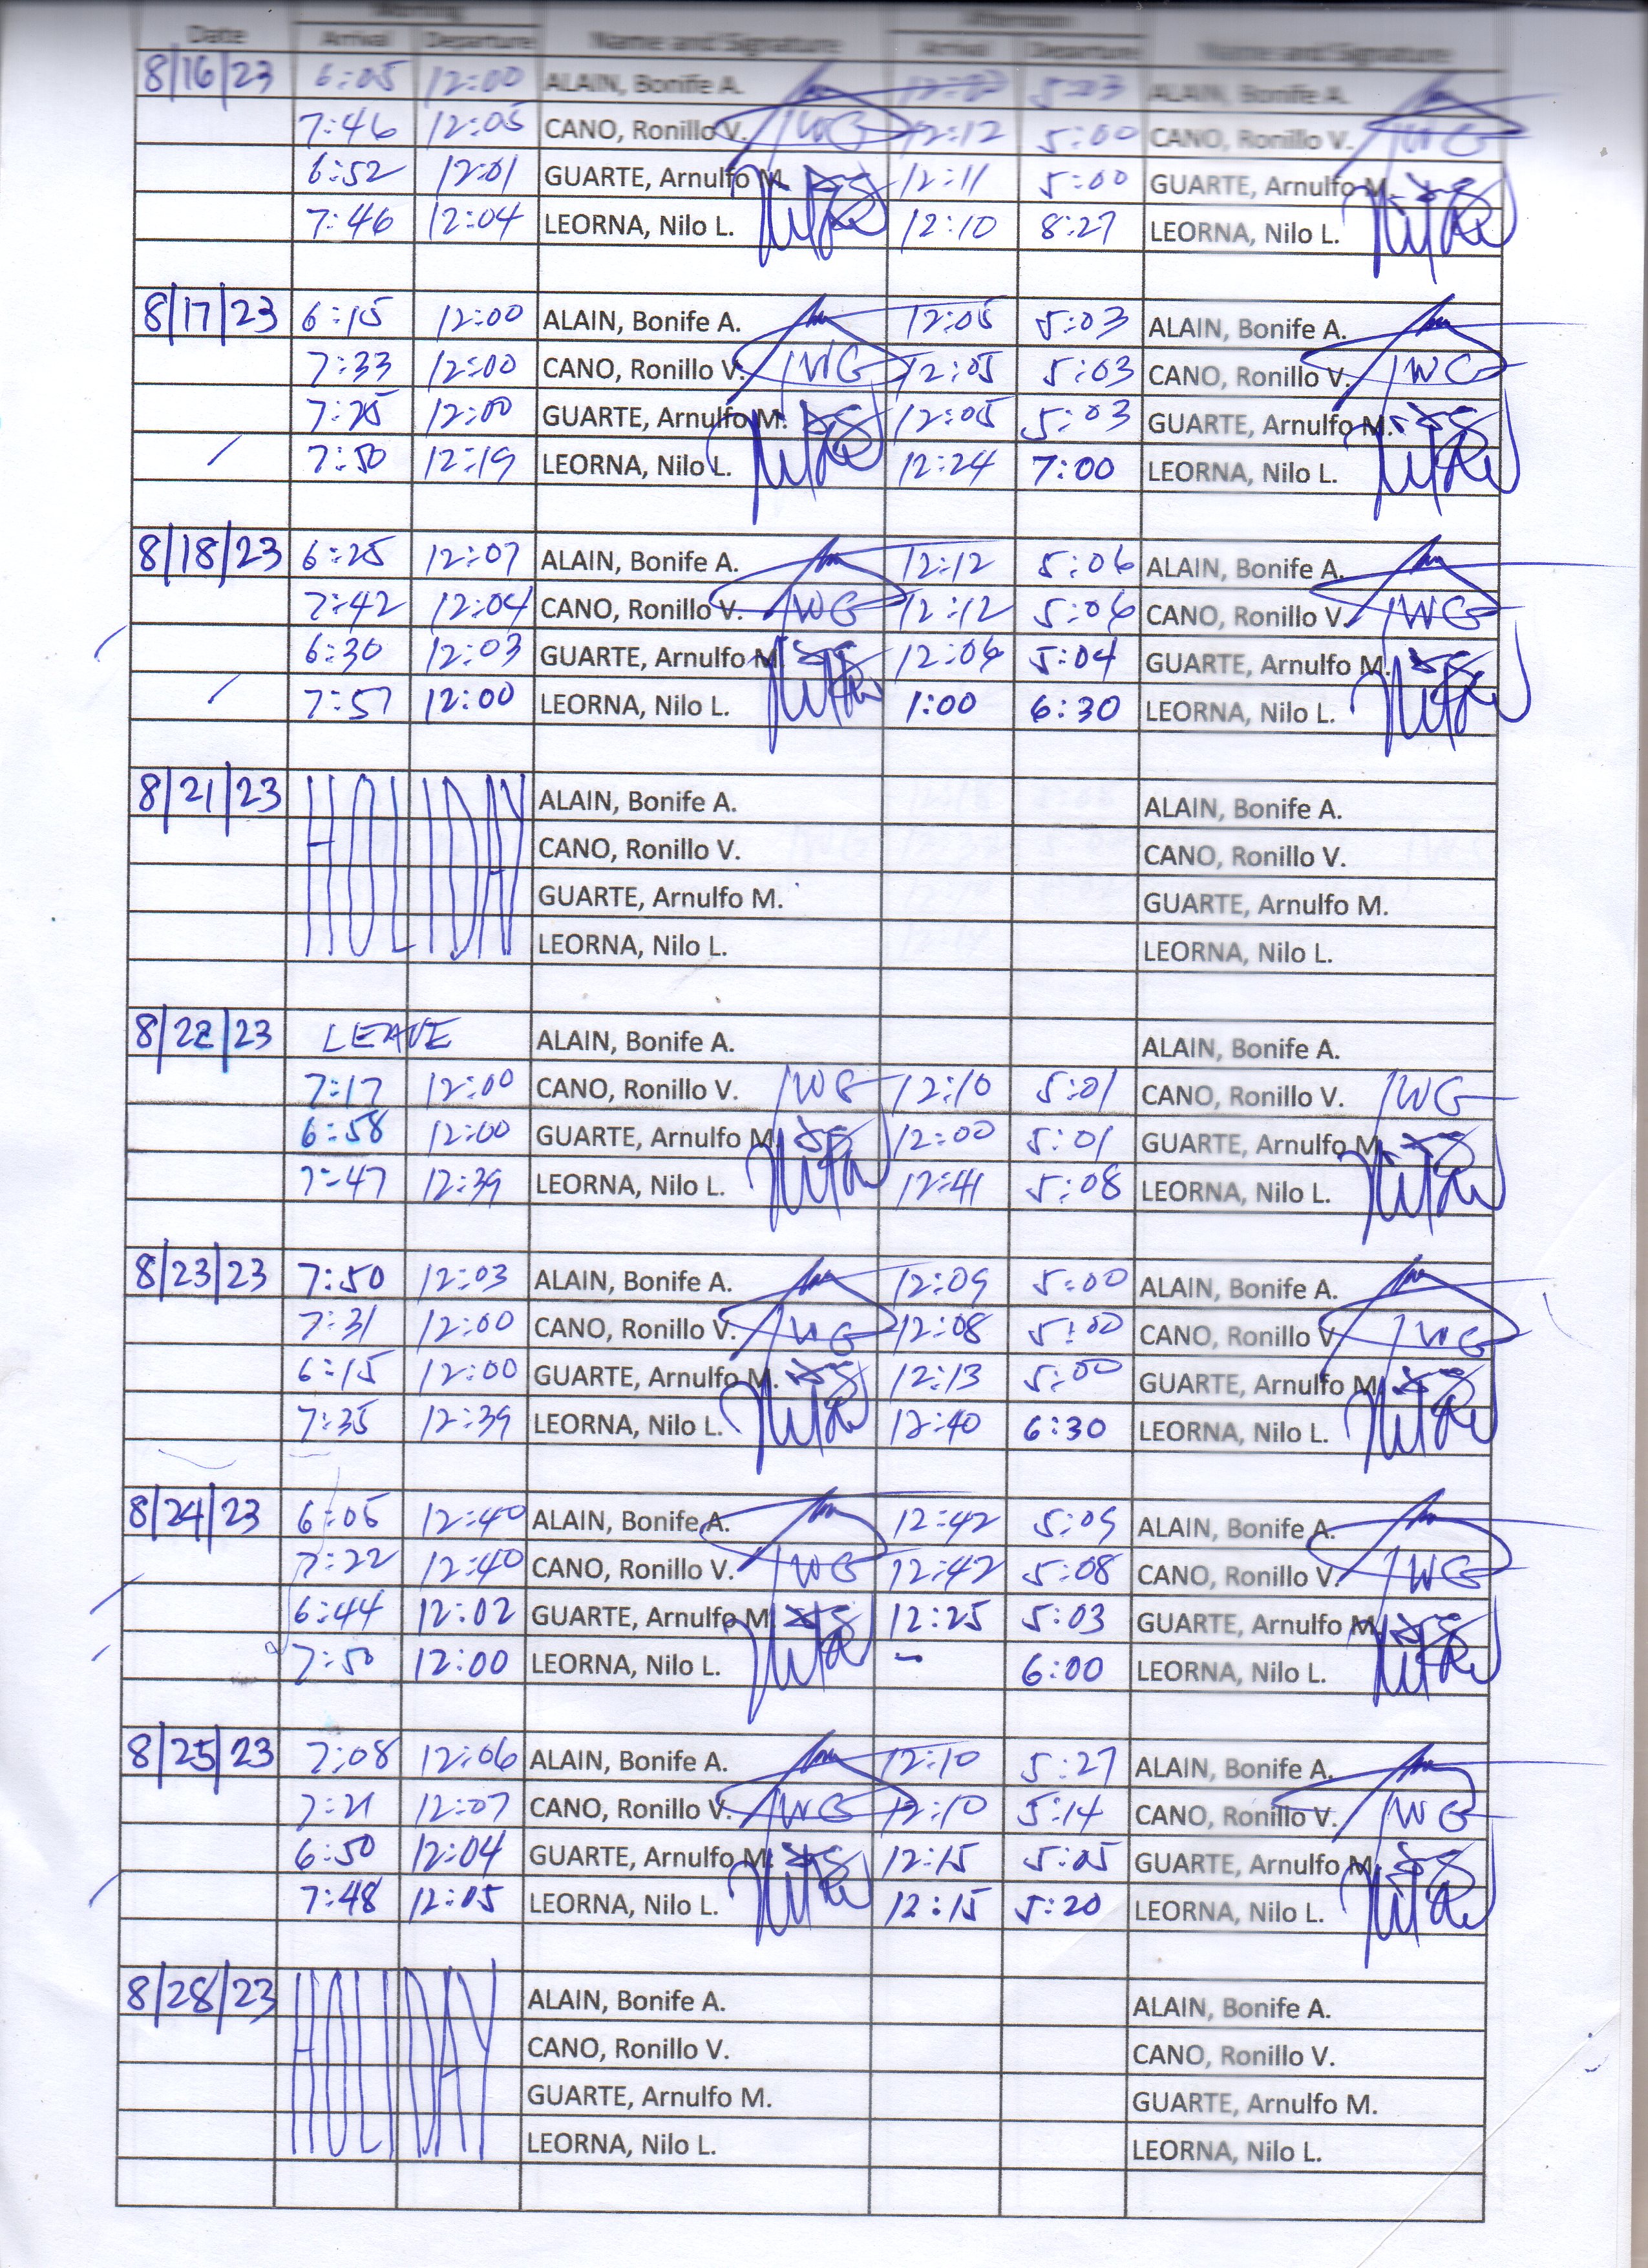 Morning Afternoon
Date Arrival Departure Name and Signature Arrival Departure Name and Signature
8/16/23 6:05 12:00 ALAIN, Bonife A. 5:03 ALAIN, Bonife A.
7:46 12:05 CANO, Ronillo V. 12:12 5:00 CANO, Ronillo V.
6:52 12:01 GUARTE, Arnulfo M. 12:11 5:00 GUARTE, Arnulfo M.
7:46 12:04 LEORNA, Nilo L. 12:10 8:27 LEORNA, Nilo L.
8/17/23 6:15 12:00 ALAIN, Bonife A. 12:05 5:03 ALAIN, Bonife A.
7:33 12:00 CANO, Ronillo V. 12:05 5:03 CANO, Ronillo V.
7:25 12:00 GUARTE, Arnulfo M. 12:05 5:03 GUARTE, Arnulfo M.
7:50 12:19 LEORNA, Nilo L. 12:24 7:00 LEORNA, Nilo L.
8/18/23 6:25 12:07 ALAIN, Bonife A. 12:12 5:06 ALAIN, Bonife A.
7:42 12:04 CANO, Ronillo V. 12:12 5:06 CANO, Ronillo V.
6:30 12:03 GUARTE, Arnulfo M. 12:06 5:04 GUARTE, Arnulfo M.
7:57 12:00 LEORNA, Nilo L. 1:00 6:30 LEORNA, Nilo L.
8/21/23 HOLIDAY ALAIN, Bonife A. ALAIN, Bonife A.
CANO, Ronillo V. CANO, Ronillo V.
GUARTE, Arnulfo M. GUARTE, Arnulfo M.
LEORNA, Nilo L. LEORNA, Nilo L.
8/22/23 LEAVE ALAIN, Bonife A. ALAIN, Bonife A.
7:17 12:00 CANO, Ronillo V. 12:10 5:01 CANO, Ronillo V.
6:58 12:00 GUARTE, Arnulfo M. 12:00 5:01 GUARTE, Arnulfo M.
7:47 12:39 LEORNA, Nilo L. 12:41 5:08 LEORNA, Nilo L.
8/23/23 7:50 12:03 ALAIN, Bonife A. 12:09 5:00 ALAIN, Bonife A.
7:31 12:00 CANO, Ronillo V. 12:08 5:00 CANO, Ronillo V.
6:15 12:00 GUARTE, Arnulfo M. 12:13 5:00 GUARTE, Arnulfo M.
7:35 12:39 LEORNA, Nilo L. 12:40 6:30 LEORNA, Nilo L.
8/24/23 6:05 12:40 ALAIN, Bonife A. 12:42 5:09 ALAIN, Bonife A.
7:22 12:40 CANO, Ronillo V. 12:42 5:08 CANO, Ronillo V.
6:44 12:02 GUARTE, Arnulfo M. 12:25 5:03 GUARTE, Arnulfo M.
7:50 12:00 LEORNA, Nilo L. - 6:00 LEORNA, Nilo L.
8/25/23 7:08 12:06 ALAIN, Bonife A. 12:10 5:27 ALAIN, Bonife A.
7:21 12:07 CANO, Ronillo V. 12:10 5:14 CANO, Ronillo V.
6:50 12:04 GUARTE, Arnulfo M. 12:15 5:05 GUARTE, Arnulfo M.
7:48 12:05 LEORNA, Nilo L. 12:15 5:20 LEORNA, Nilo L.
8/28/23 HOLIDAY ALAIN, Bonife A. ALAIN, Bonife A.
CANO, Ronillo V. CANO, Ronillo V.
GUARTE, Arnulfo M. GUARTE, Arnulfo M.
LEORNA, Nilo L. LEORNA, Nilo L.